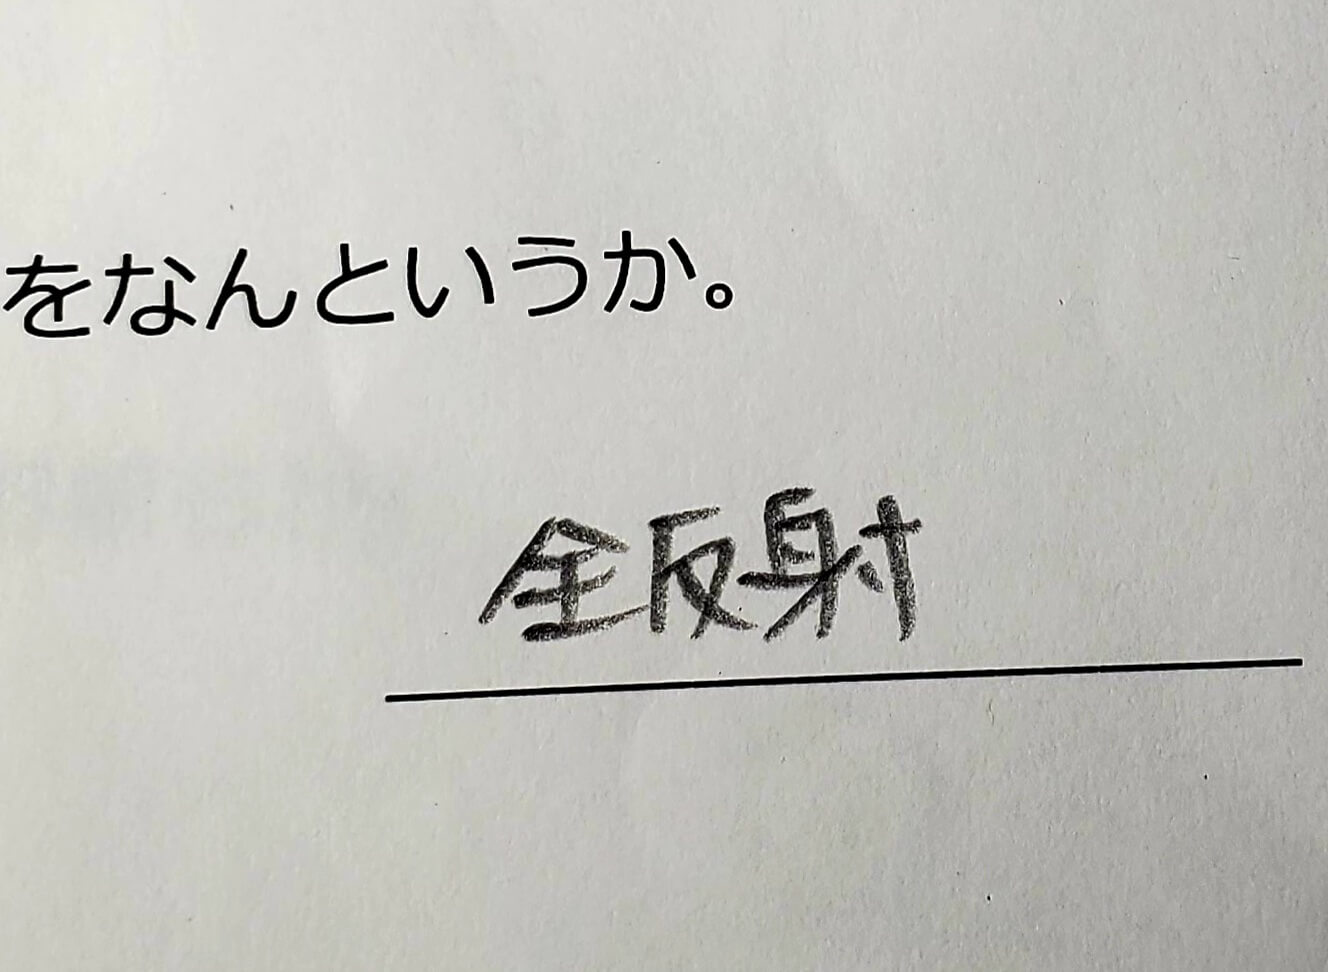 をなんというか。
全反射